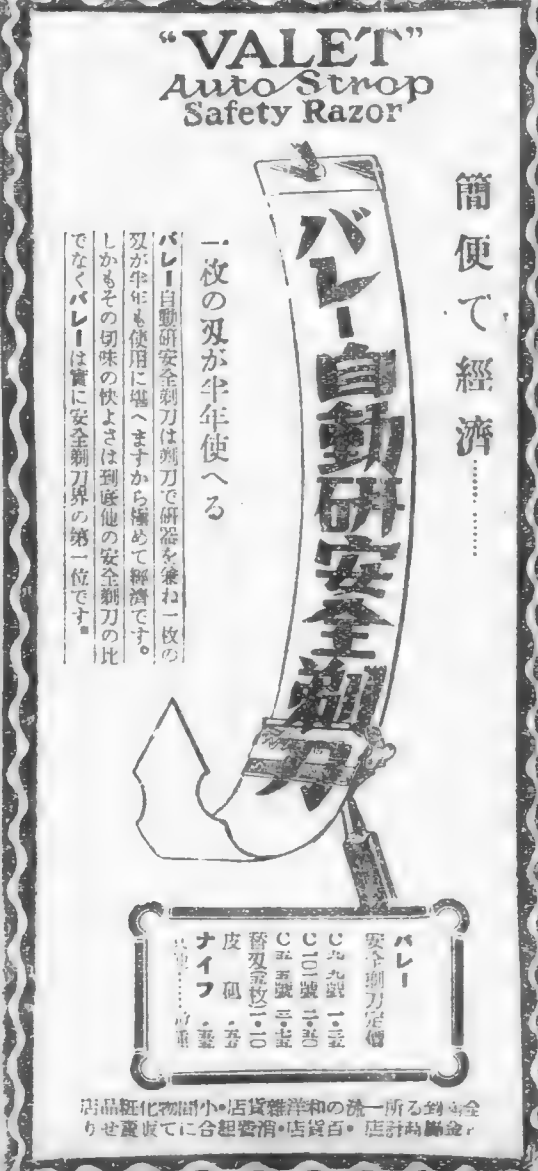 "VALET"
Auto Strop
Safety Razor
簡便で經濟
バレー自動研安全剃刀
一枚の刄が半年使へる
バレー自動研安全剃刀は剃刀で研器を兼ね一枚の
刄が半年も使用に堪へますから極めて經濟です。
しかもその切味の快よさは到底他の安全剃刀の比
でなくバレーは實に安全剃刀界の第一位です。
バレー
安全剃刀定價
C 號
C 101號
C 號
替刄
皮砥
ナイフ
全國到る所一流の和洋雜貨店・小間物化粧品店
時計店・百貨店・消費組合にて販賣せり